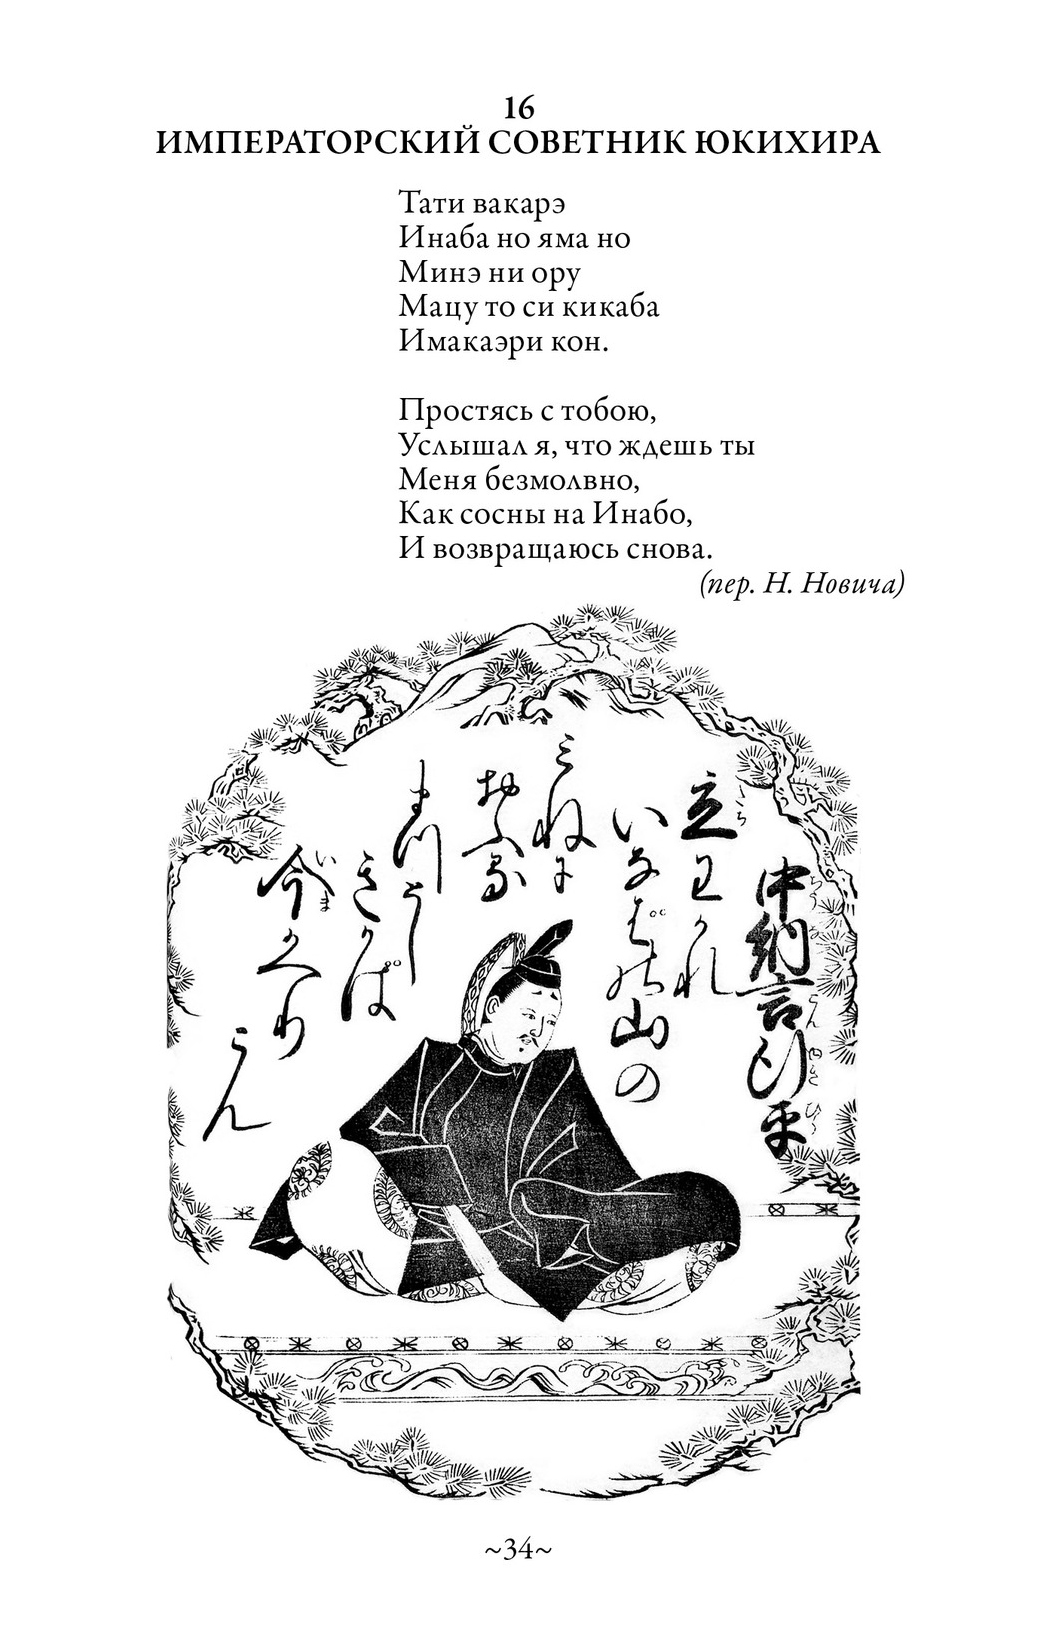 16
ИМПЕРАТОРСКИЙ СОВЕТНИК ЮКИХИРА
Тати вакарэ
Инаба но яма но
Минэ ни ору
Мацу то си кикаба
Имакаэри кон.
Простясь с тобою,
Услышал я, что ждешь ты
Меня безмолвно,
Как сосны на Инабо,
И возвращаюсь снова.
(пер. Н. Новича)
中納言行平
立わかれ
いなばの山の
みねに
おふる
まつとし
きかば
今かへり
こん
~34~